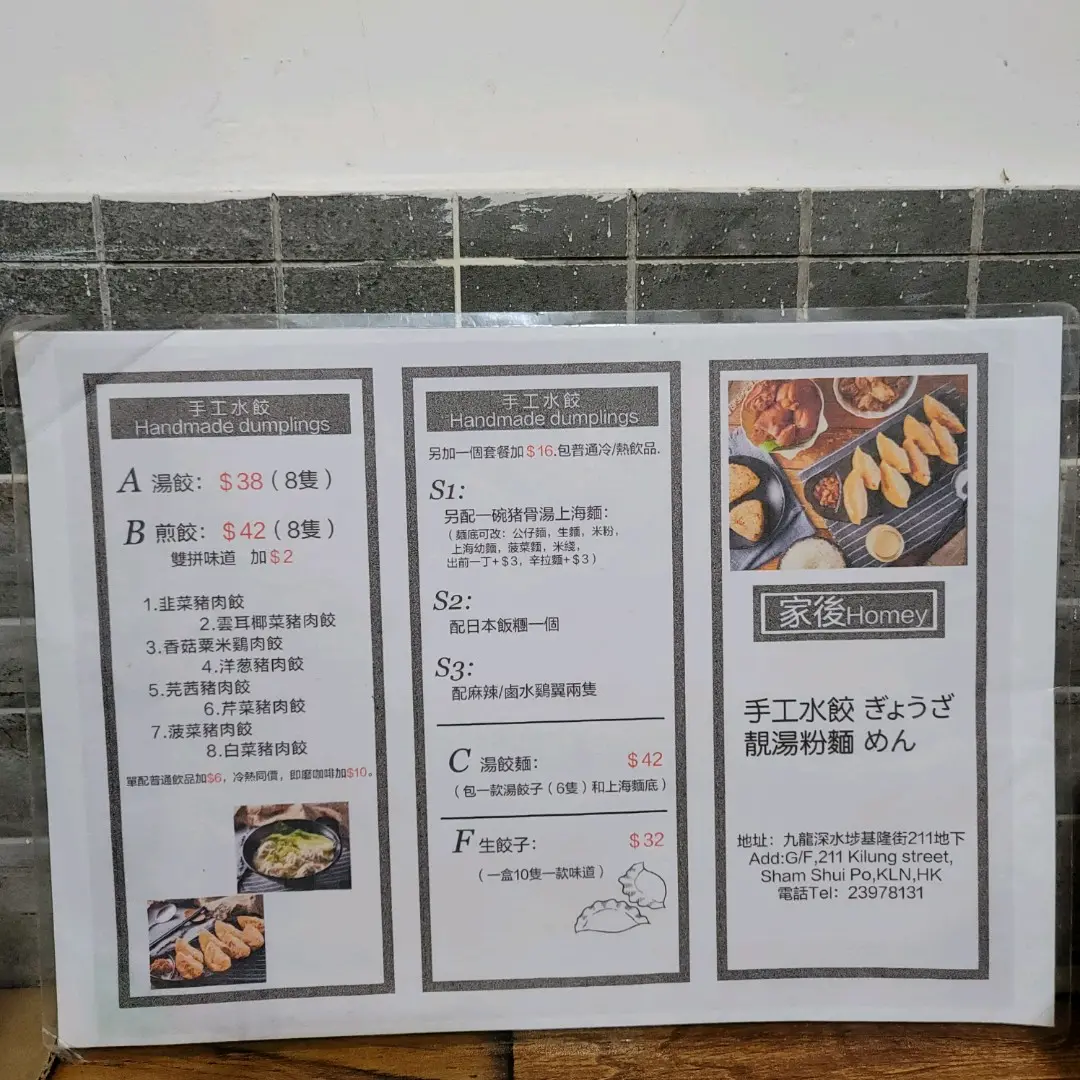 手工水餃
Handmade dumplings
A 湯餃: $38(8隻)
B 煎餃: $42(8隻)
雙拼味道 加$2
1.韭菜豬肉餃
2.雲耳椰菜豬肉餃
3.香菇粟米鷄肉餃
4.洋葱豬肉餃
5.芫茜豬肉餃
6.芹菜豬肉餃
7.菠菜豬肉餃
8.白菜豬肉餃
單配普通飲品加$6, 冷熱同價, 即磨咖啡加$10。
手工水餃
Handmade dumplings
另加一個套餐加$16.包普通冷/熱飲品.
S1:
另配一碗猪骨湯上海麵:
(麵底可改: 公仔麵, 生麵, 米粉,
上海幼麵, 菠菜麵, 米綫,
出前一丁+$3, 辛拉麵+$3)
S2:
配日本飯糰一個
S3:
配麻辣/鹵水鷄翼兩隻
C 湯餃麵: $42
(包一款湯餃子(6隻)和上海麵底)
F 生餃子: $32
(一盒10隻一款味道)
家後Homey
手工水餃 ぎょうざ
靚湯粉麵 めん
地址: 九龍深水埗基隆街211地下
Add:G/F,211 Kilung street,
Sham Shui Po,KLN,HK
電話Tel: 23978131